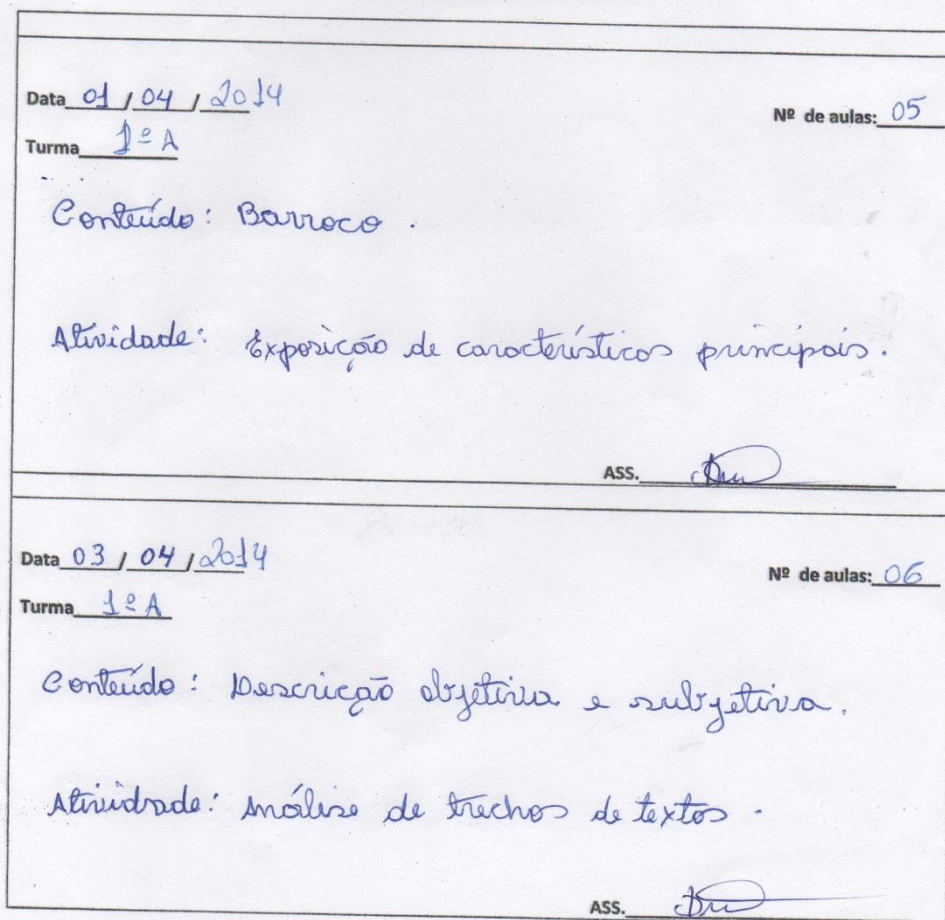 Data 01 / 04 / 2014
Nº de aulas: 05
Turma 1º A
Conteúdo: Barroco.
Atividade: Exposição de características principais.
ASS.
Data 03 / 04 / 2014
Nº de aulas: 06
Turma 1º A
Conteúdo: Descrição objetiva e subjetiva.
Atividade: Análise de trechos de textos.
ASS.